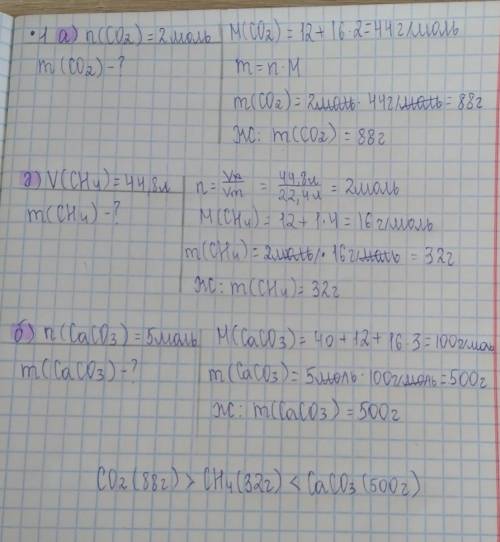 •1 а) n(CO₂) = 2 моль
m(CO₂) - ?
M(CO₂) = 12 + 16·2 = 44 г/моль
m = n·M
m(CO₂) = 2моль · 44г/моль = 88г
Ж: m(CO₂) = 88г
д) V(CH₄) = 44,8л
m(CH₄) - ?
n = Vn/Vm = 44,8л/22,4л = 2моль
M(CH₄) = 12 + 1·4 = 16 г/моль
m(CH₄) = 2моль · 16г/моль = 32г
Ж: m(CH₄) = 32г
б) n(CaCO₃) = 5моль
m(CaCO₃) - ?
M(CaCO₃) = 40 + 12 + 16·3 = 100г/моль
m(CaCO₃) = 5моль · 100г/моль = 500г
Ж: m(CaCO₃) = 500г
CO₂ (88г) > CH₄ (32г) < CaCO₃ (500г)